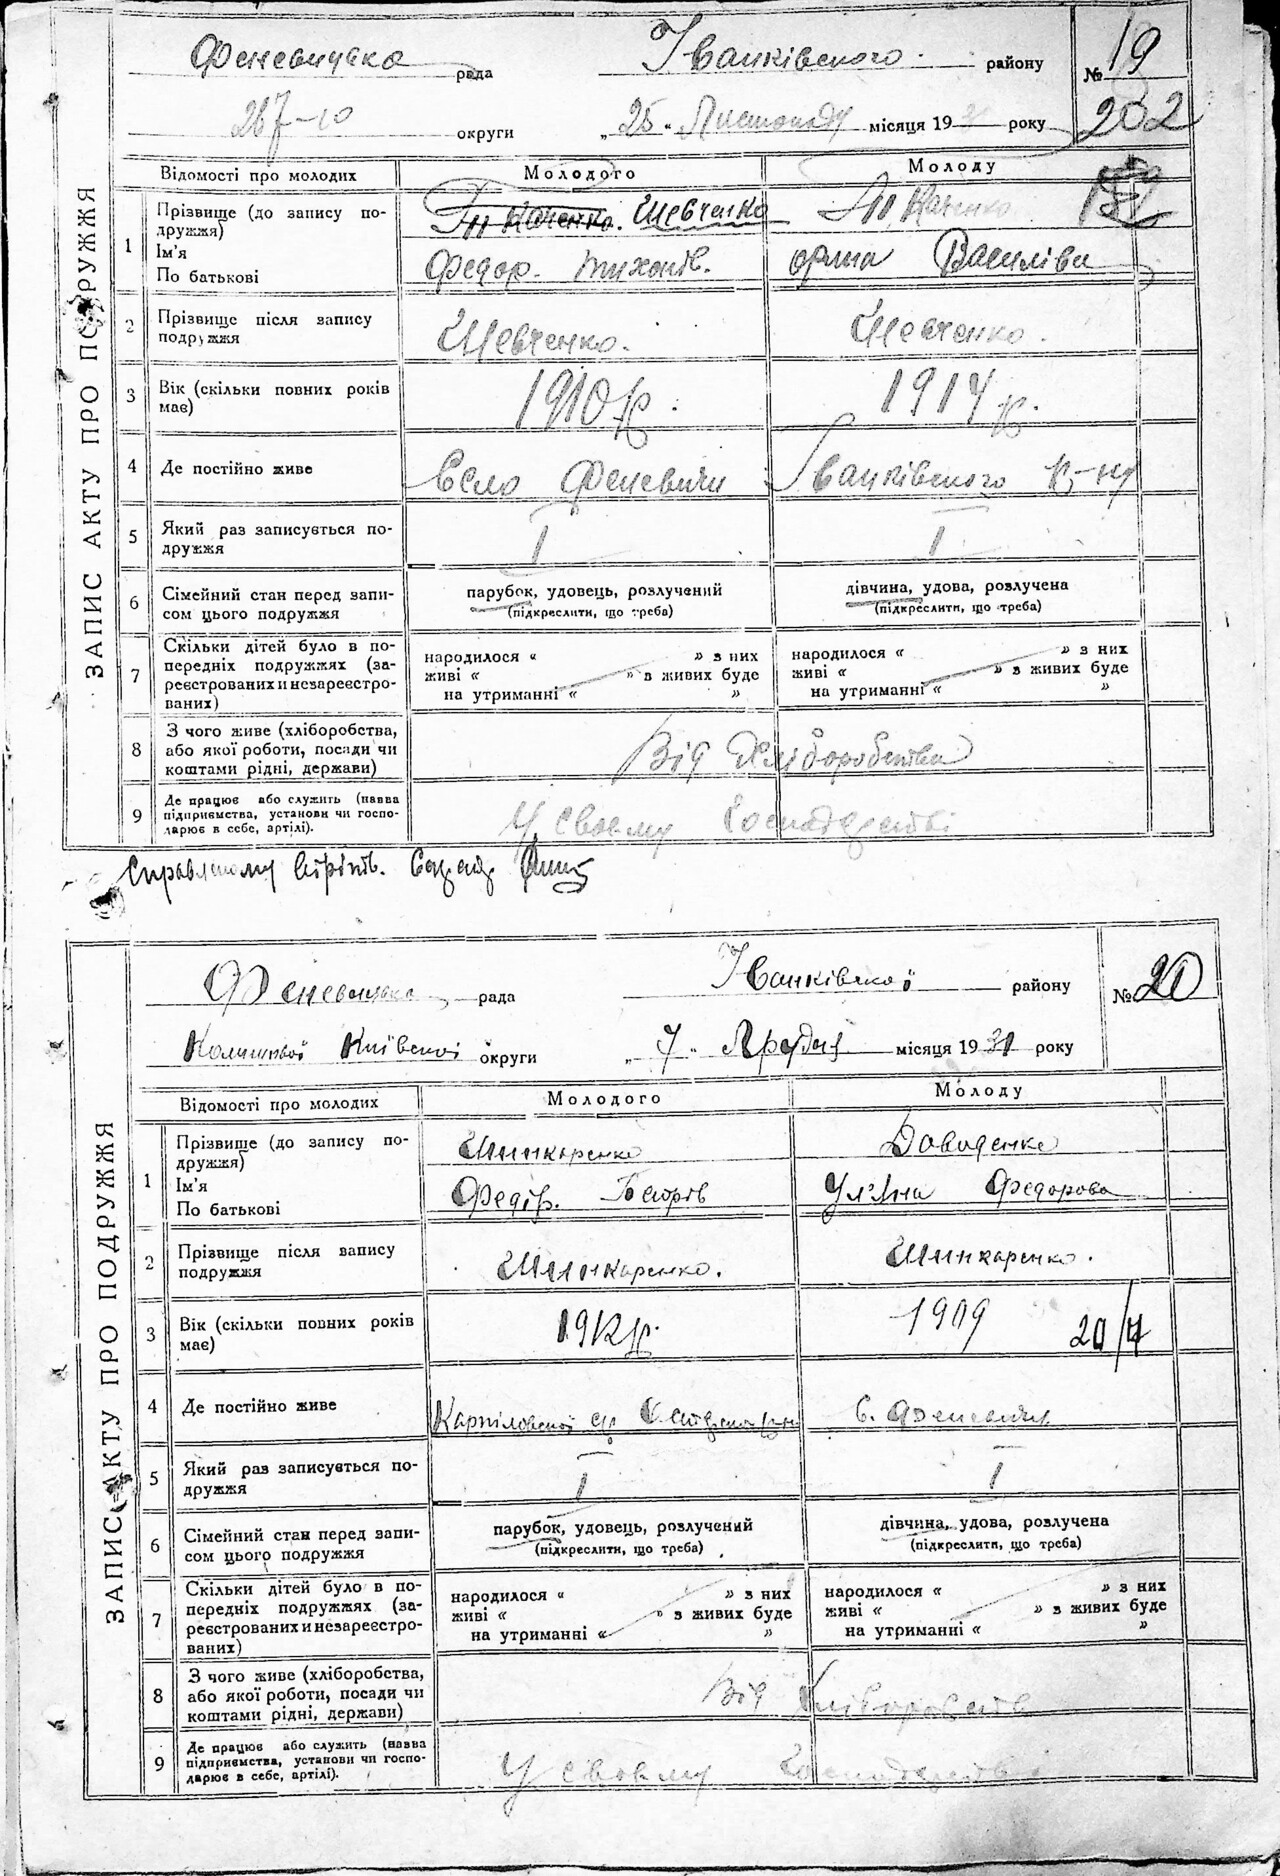 Феневицька рада Іванківського району № 19
округи „25" Листопада місяця 1931 року 202
ЗАПИС АКТУ ПРО ПОДРУЖЖЯ
Відомості про молодих Молодого Молоду
1 Прізвище (до запису подружжя) Ткаченко. Шевченко Ткаченко
Ім'я
По батькові Федор. Тихонів. Орина Василіва
2 Прізвище після запису подружжя Шевченко. Шевченко.
3 Вік (скільки повних років має) 1910 р. 1914 р.
4 Де постійно живе Село Феневичи Іванківського Р-ну
5 Який раз записується подружжя I I
6 Сімейний стан перед записом цього подружжя парубок, удовець, розлучений дівчина, удова, розлучена
(підкреслити, що треба) (підкреслити, що треба)
7 Скільки дітей було в попередніх подружжях (зареєстрованих и незареєстрованих) народилося “ ” з них народилося “ ” з них
живі “ ” в живих буде живі “ ” в живих буде
на утриманні “ ” на утриманні “ ”
8 З чого живе (хліборобства, або якої роботи, посади чи коштами рідні, держави) Від Хліборобства
9 Де працює або служить (назва підприємства, установи чи господарює в себе, артілі). У своєму Господарстві
Феневицька рада Іванківської району № 20
Колишньої Київської округи „7" Грудня місяця 1931 року
ЗАПИС АКТУ ПРО ПОДРУЖЖЯ
Відомості про молодих Молодого Молоду
1 Прізвище (до запису подружжя) Шинкаренко Давиденко
Ім'я
По батькові Федір. Петрів Ул'яна Федорова
2 Прізвище після запису подружжя Шинкаренко. Шинкаренко.
3 Вік (скільки повних років має) 1912 р. 1909
4 Де постійно живе Карпіловської с. Феневичи
5 Який раз записується подружжя I I
6 Сімейний стан перед записом цього подружжя парубок, удовець, розлучений дівчина, удова, розлучена
(підкреслити, що треба) (підкреслити, що треба)
7 Скільки дітей було в попередніх подружжях (зареєстрованих и незареєстрованих) народилося “ ” з них народилося “ ” з них
живі “ ” в живих буде живі “ ” в живих буде
на утриманні “ ” на утриманні “ ”
8 З чого живе (хліборобства, або якої роботи, посади чи коштами рідні, держави) Від Хліборобств
9 Де працює або служить (назва підприємства, установи чи господарює в себе, артілі). У своєму Господарстві